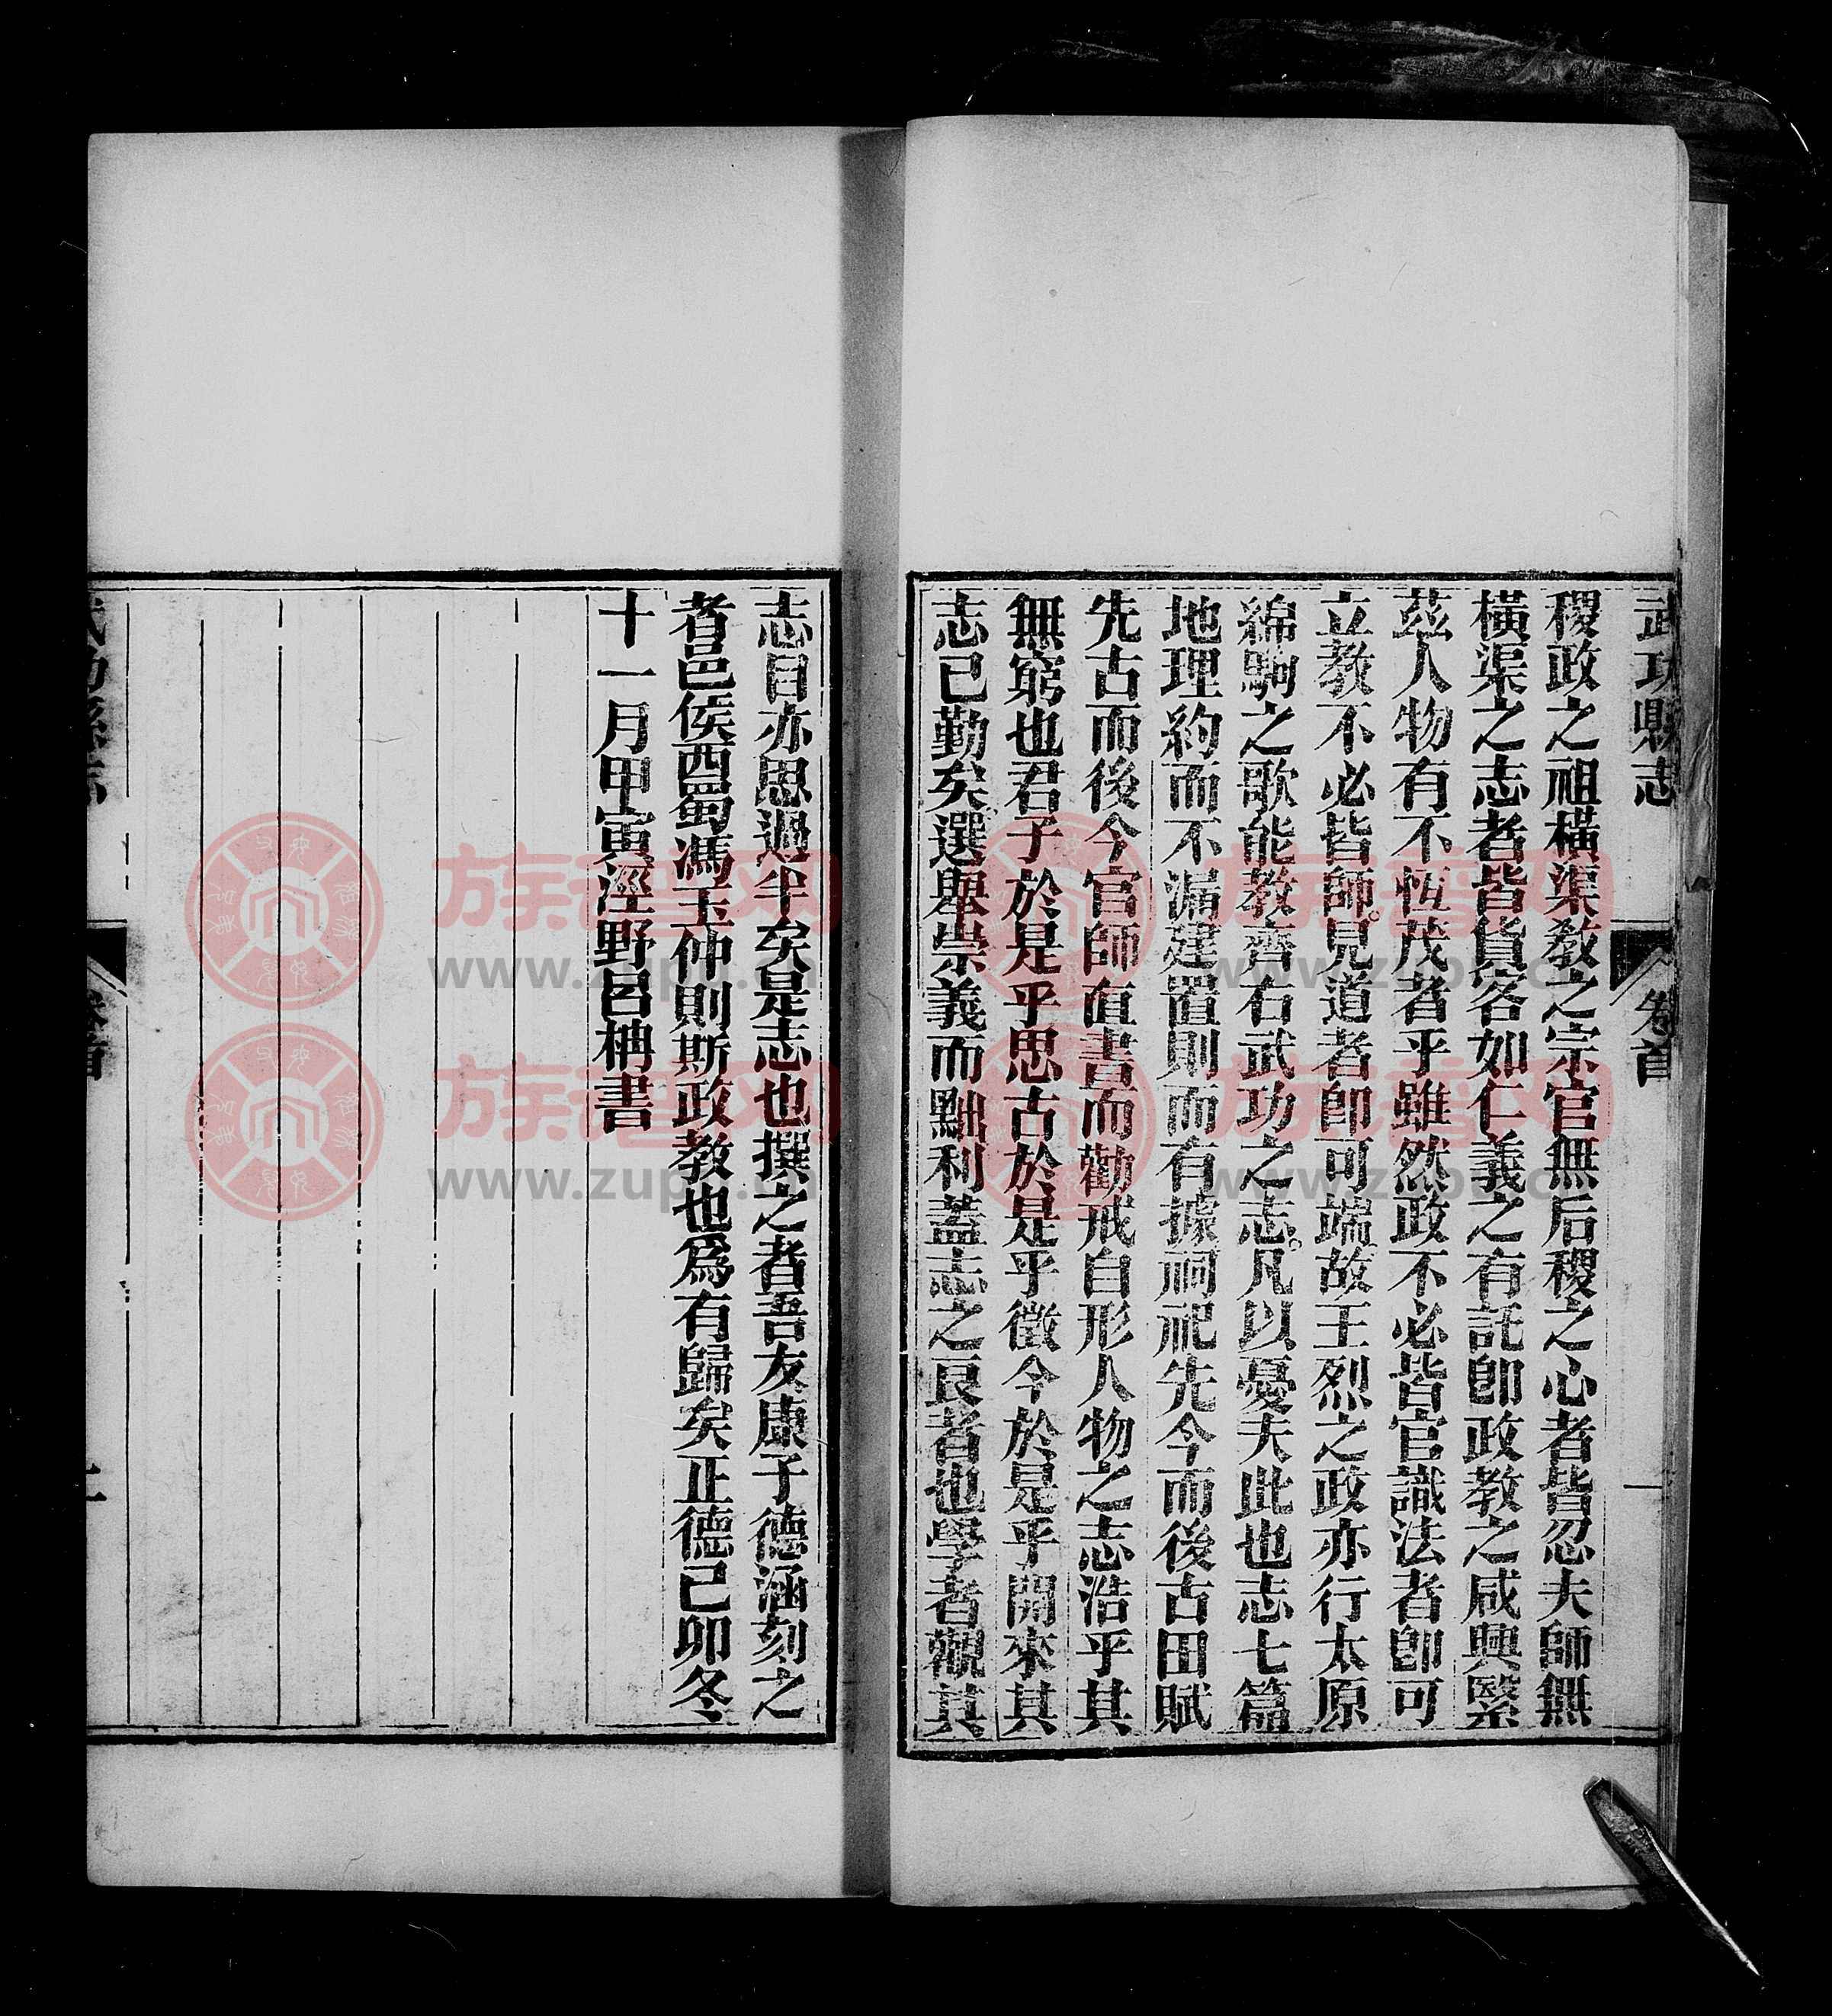 武功縣志
卷首
一
稷政之祖橫渠敎之宗官無后稷之心者皆忍夫師無
橫渠之志者皆貨客如仁義之有託卽政教之咸興緊
茲人物有不恆茂者乎雖然政不必皆官識法者卽可
立教不必皆師見道者卽可端故王烈之政亦行太原
綿駒之歌能教齊右武功之志凡以憂夫此也志七篇
地理約而不漏建置則而有據祠祀先今而後古田賦
先古而後今官師直書而勸戒自形人物之志浩乎其
無窮也君子於是乎思古於是乎徵今於是乎開來其
志已勤矣選舉崇義而黜利蓋志之良者也學者觀其
志目亦思過半矣是志也撰之者吾友康子德涵刻之
者邑侯西蜀馮玉仲則斯政教也爲有歸矣正德己卯冬
十一月甲寅涇野呂柟書
族譜网
www.zupu.cn
族譜网
www.zupu.cn
族譜网
www.zupu.cn
族譜网
www.zupu.cn